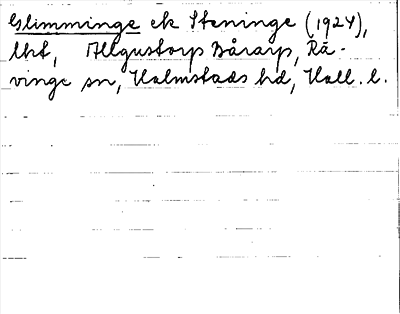 Glimminge ek Steninge (1924),
lht, Allgustorp Bårarp, Rä-
vinge sn, Halmstads hd, Hall. l.